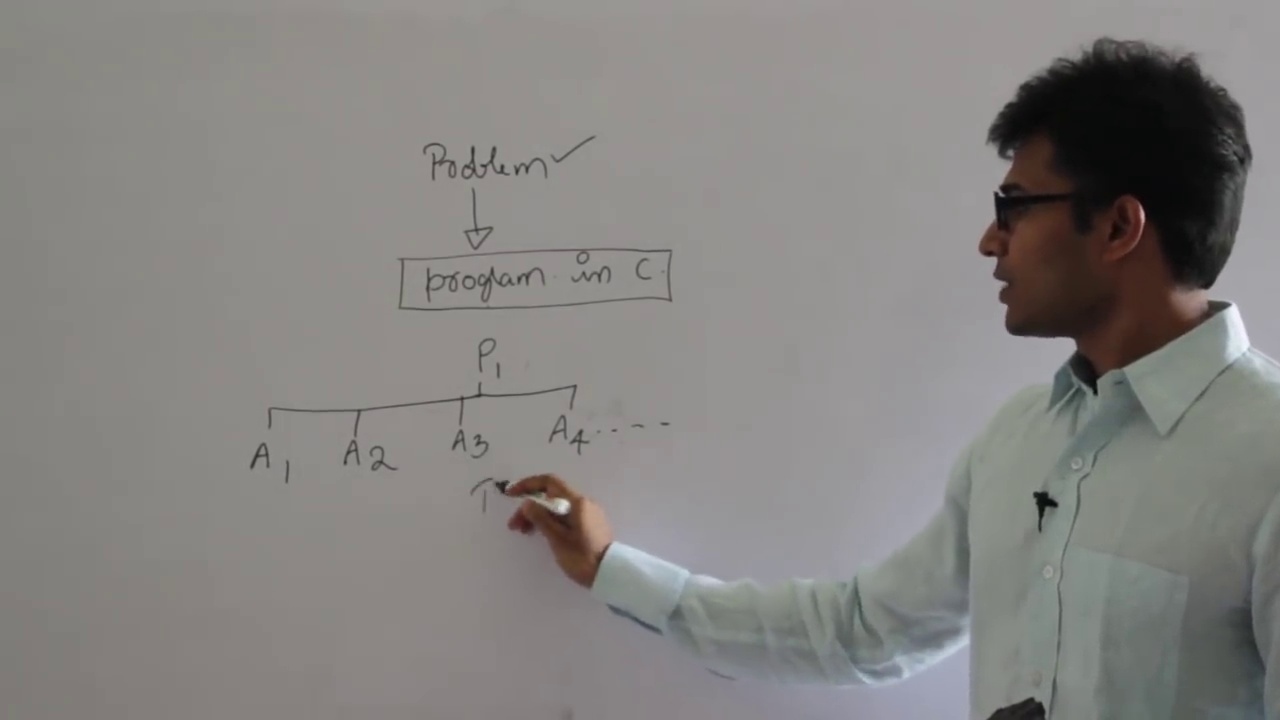 Problem ✓
program in C.
P1
A1 A2 A3 A4.....
T